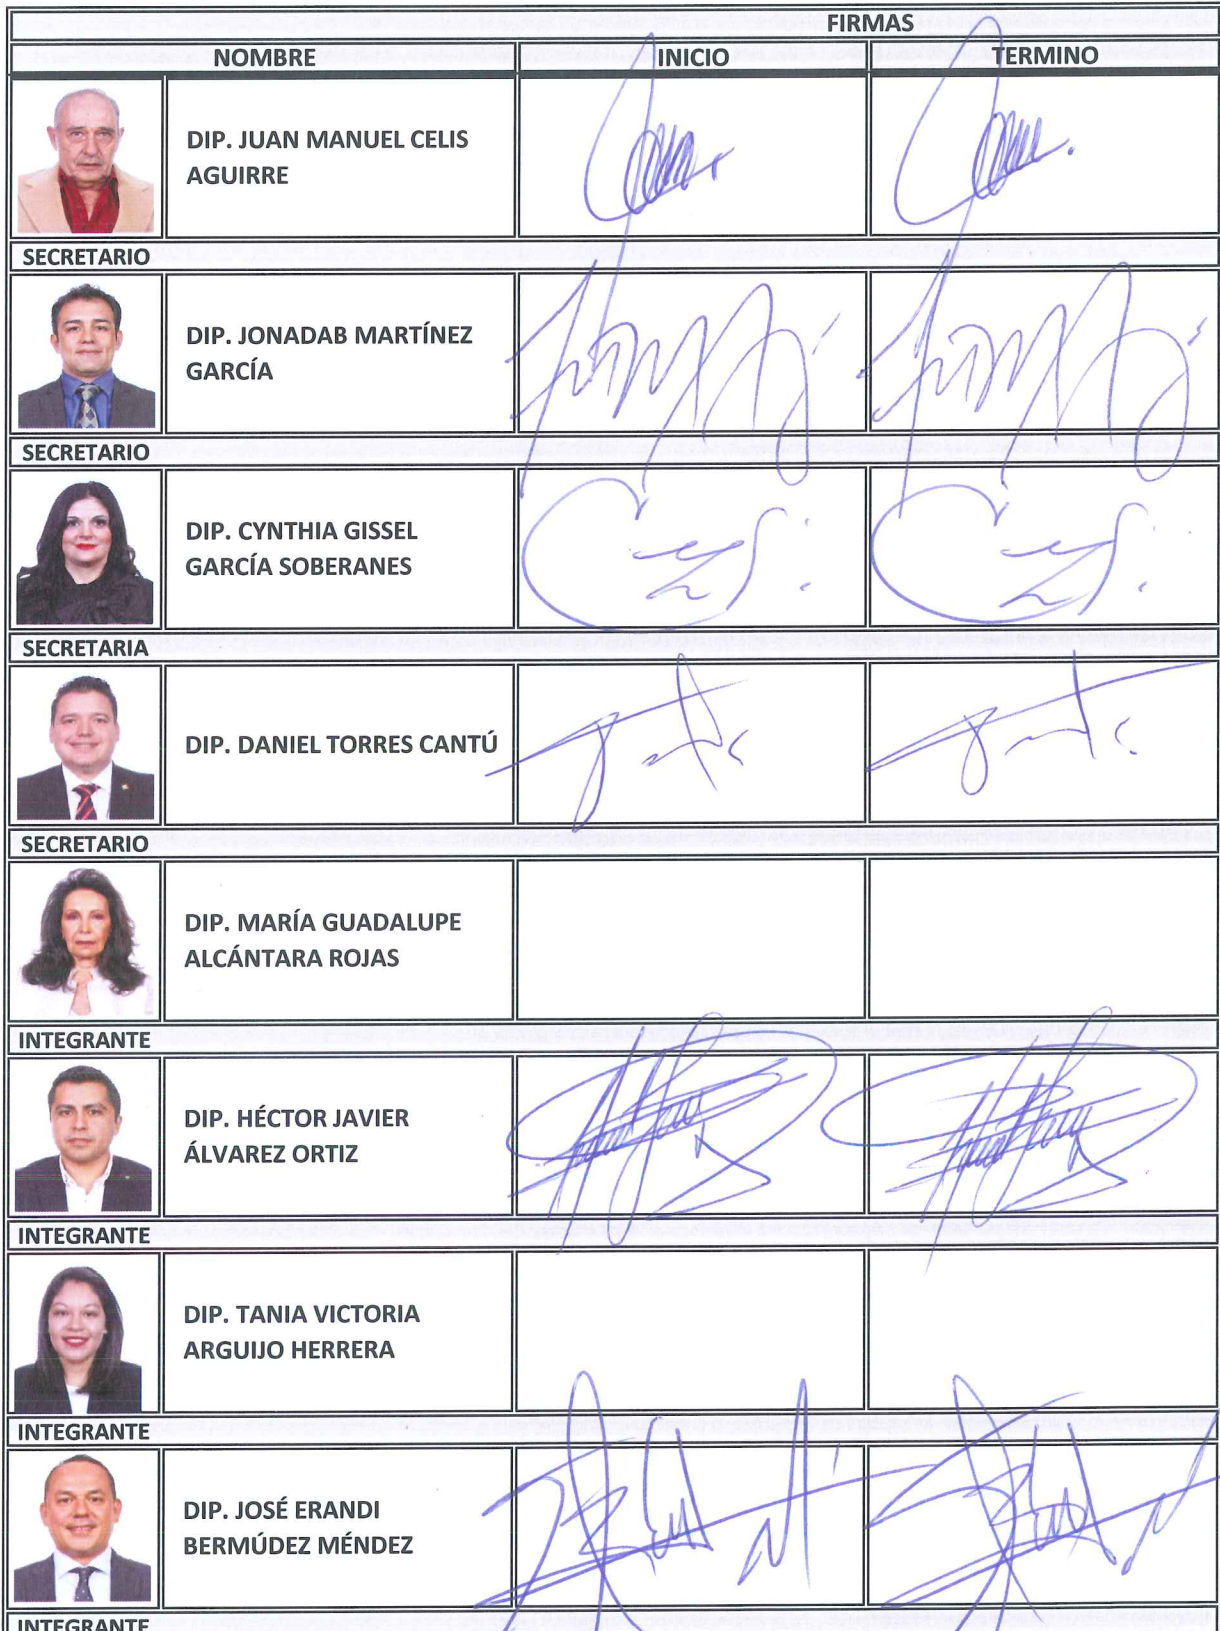 FIRMAS
NOMBRE INICIO TERMINO
DIP. JUAN MANUEL CELIS
AGUIRRE
SECRETARIO
DIP. JONADAB MARTÍNEZ
GARCÍA
SECRETARIO
DIP. CYNTHIA GISSEL
GARCÍA SOBERANES
SECRETARIA
DIP. DANIEL TORRES CANTÚ
SECRETARIO
DIP. MARÍA GUADALUPE
ALCÁNTARA ROJAS
INTEGRANTE
DIP. HÉCTOR JAVIER
ÁLVAREZ ORTIZ
INTEGRANTE
DIP. TANIA VICTORIA
ARGUIJO HERRERA
INTEGRANTE
DIP. JOSÉ ERANDI
BERMÚDEZ MÉNDEZ
INTEGRANTE